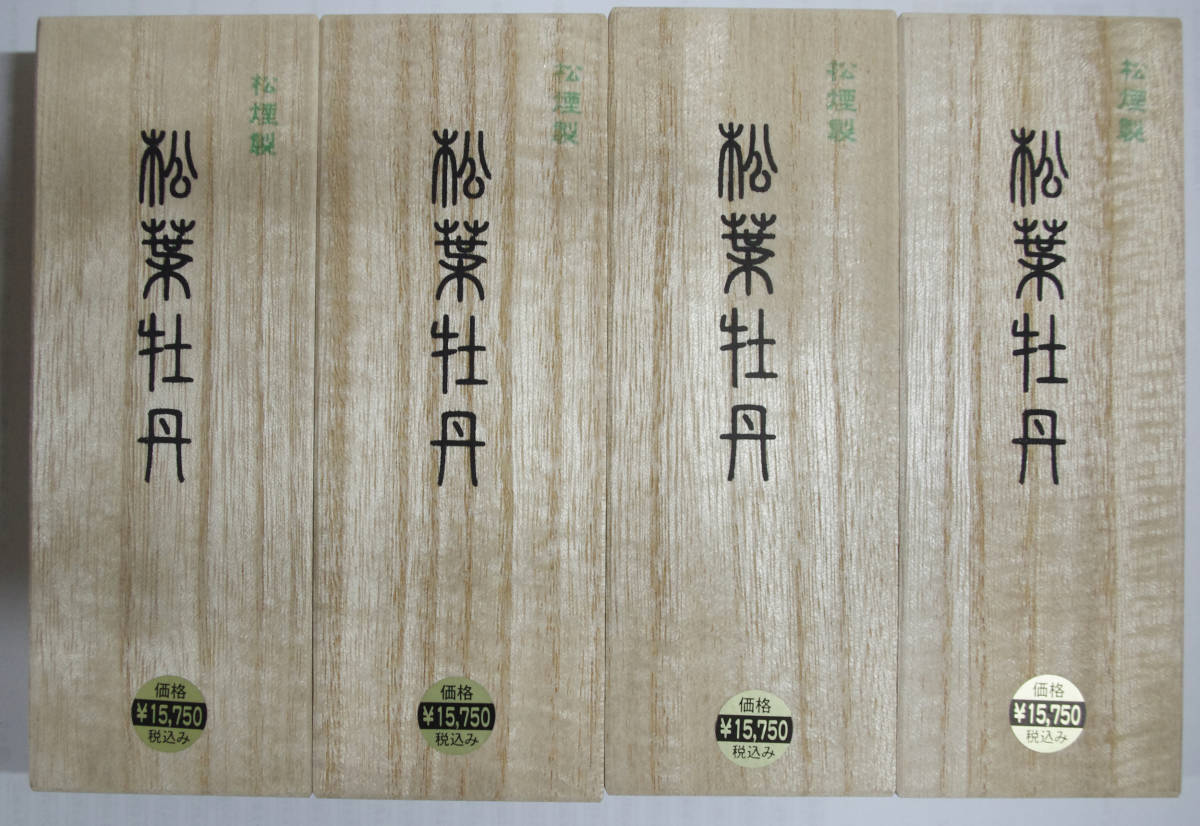 松煙製
松葉牡丹
価格
¥15,750
税込み
松煙製
松葉牡丹
価格
¥15,750
税込み
松煙製
松葉牡丹
価格
¥15,750
税込み
松煙製
松葉牡丹
価格
¥15,750
税込み